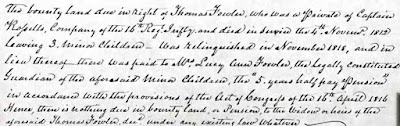 the bounty land due in right of Thomas Fowler, who was a Private of Captain
Rossells, Company of the 16th Reg. Infty. and died in service the 4th Novem. 1812
leaving 3. Minor Children – was relinquished in November 1818, and in
lieu thereof – there was paid to Mrs Lucy Ann Fowler, the Legally constituted
Guardian of the aforesaid Minor Children, the 5. years half pay Pension
in accordance with the provisions of the Act of Congress of the 16th April 1816
Hence, there is nothing due in bounty land, or Pension, to the Widow or heirs of the
aforesaid Thomas Fowler, dec'd under any existing law whatever